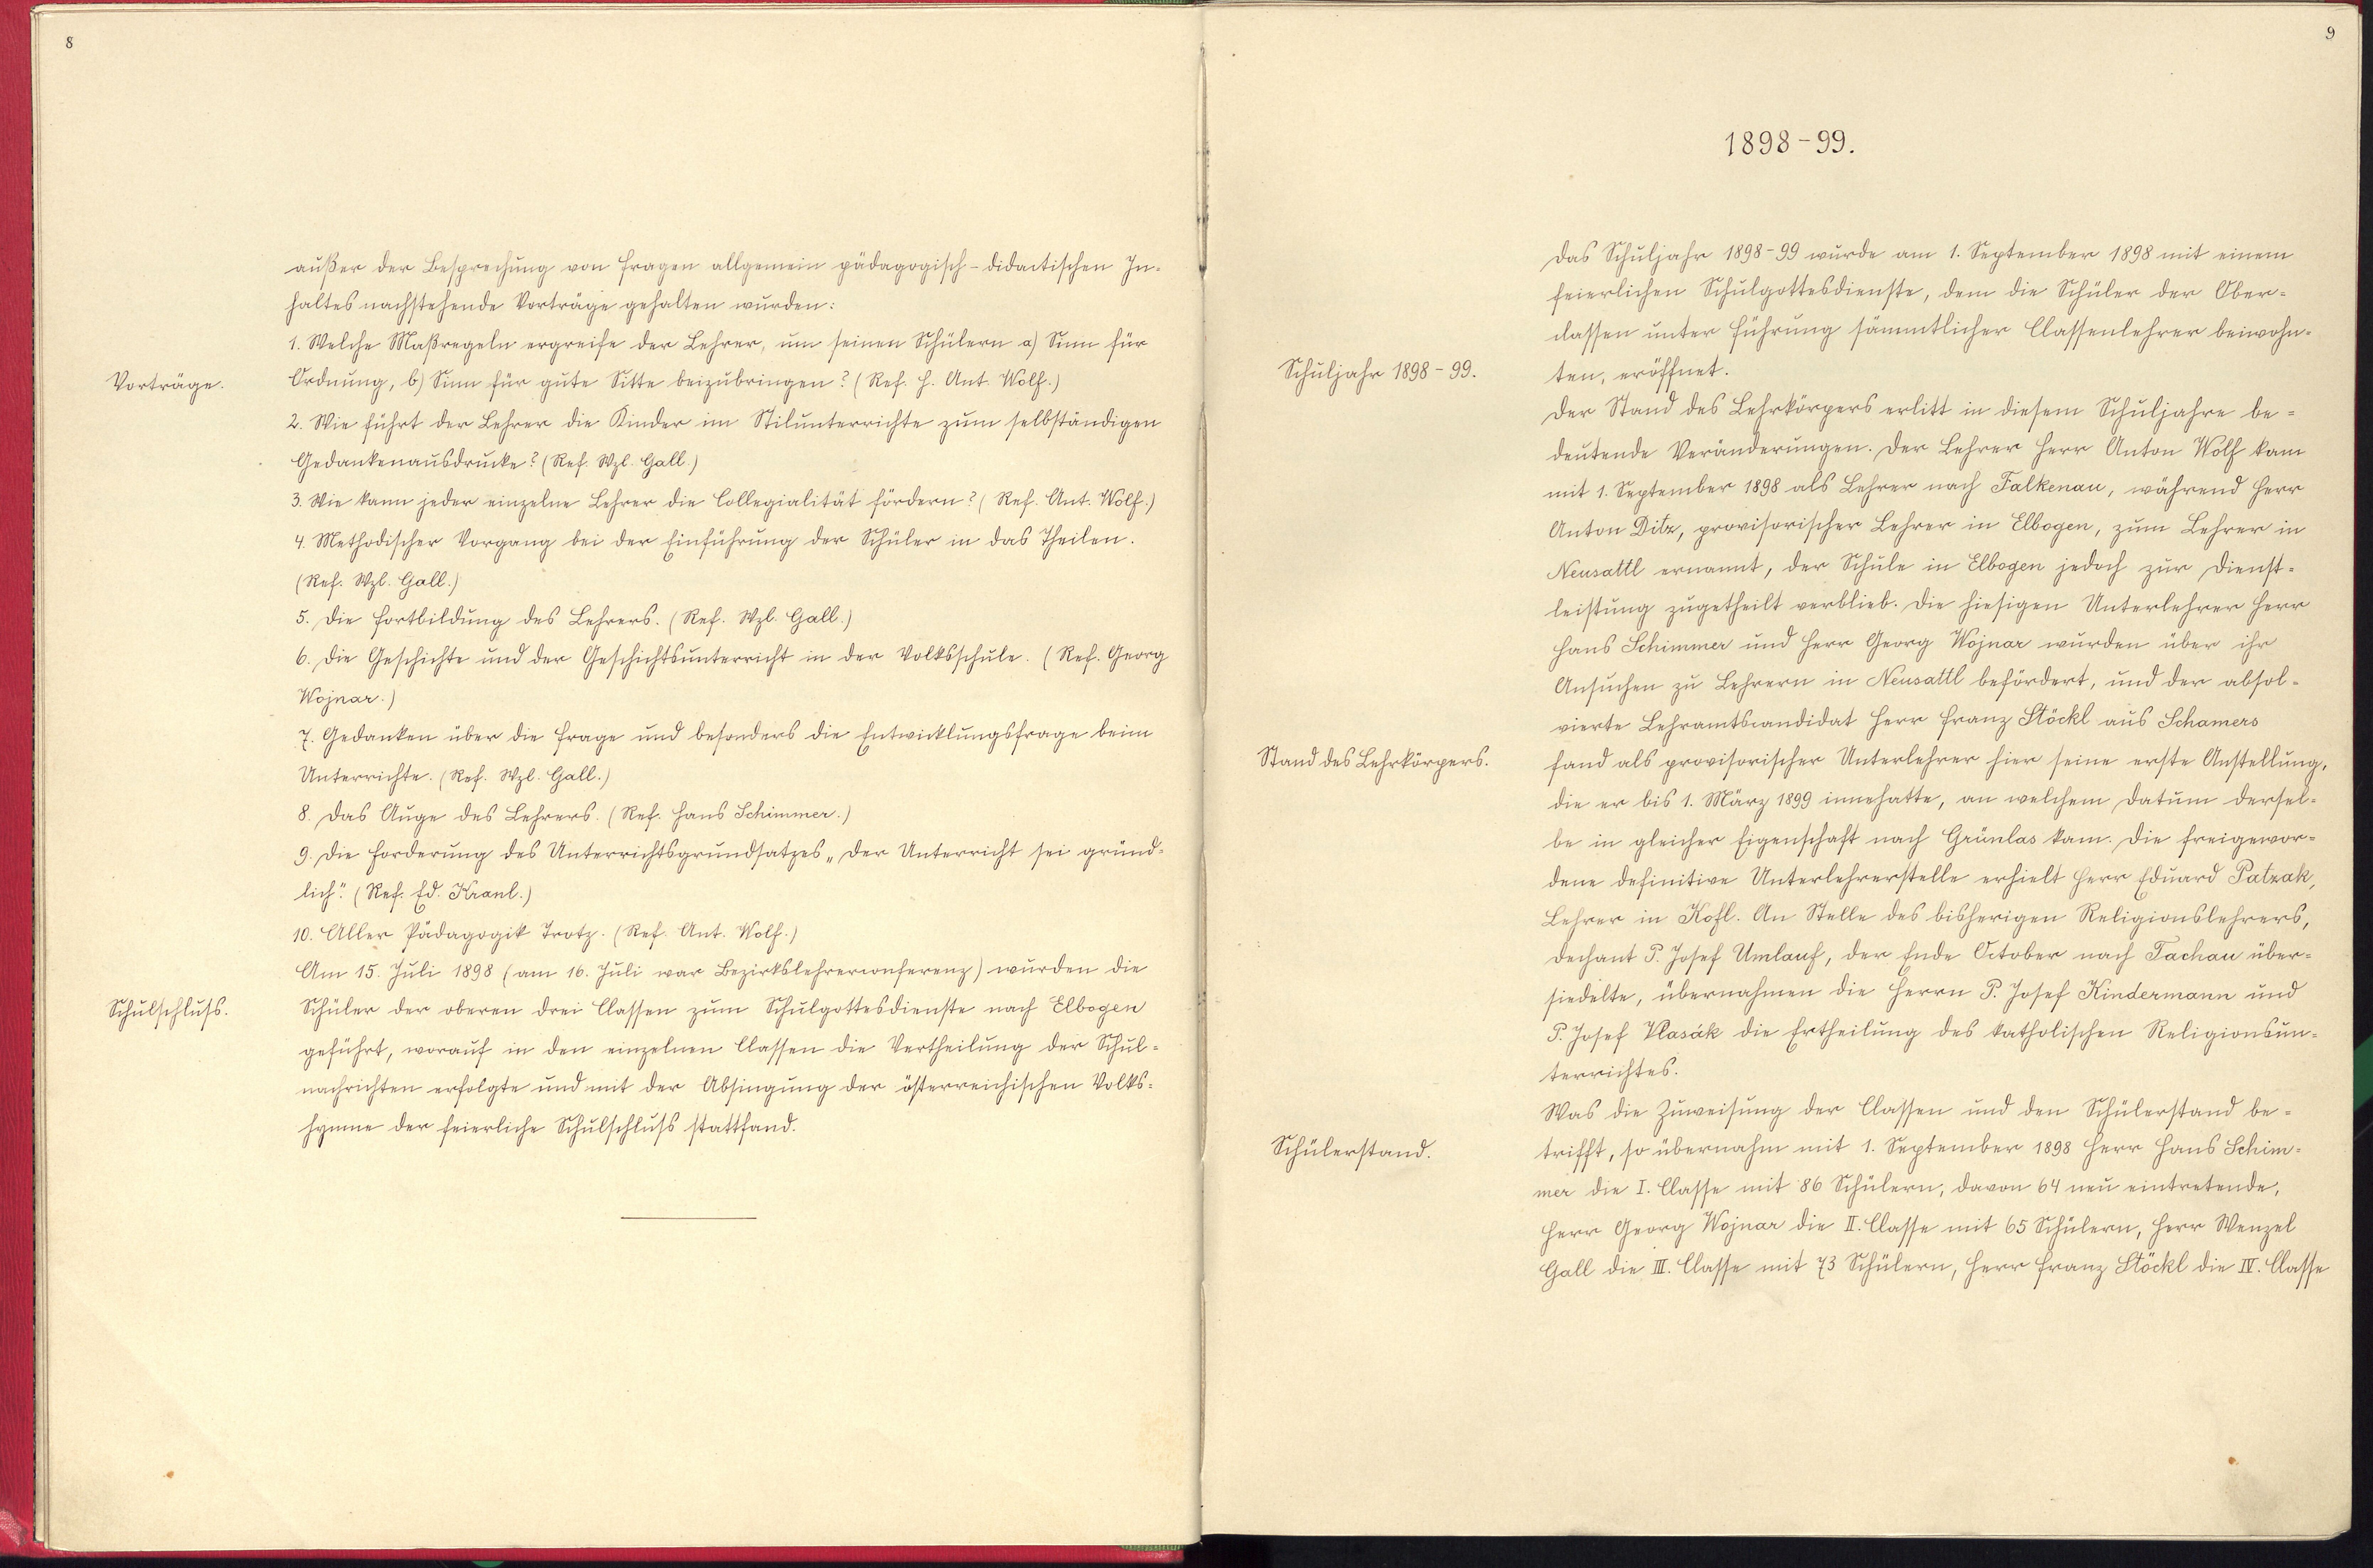 8
außer der Besprechung von Fragen allgemein pädagogisch-didactischen In-
haltes nachstehende Vorträge gehalten wurden:
1. Welche Maßregeln ergreife der Lehrer, um seinen Schülern a) Sinn für
Vorträge.
Ordnung, b) Sinn für gute Sitte beizubringen? (Ref. H. Ant. Wolf.)
2. Wie führt der Lehrer die Kinder im Stilunterrichte zum selbständigen
Gedankenausdrucke? (Ref. Wzl. Gall.)
3. Wie kann jeder einzelne Lehrer die Collegialität fördern? (Ref. Ant. Wolf.)
4. Methodischer Vorgang bei der Einführung der Schüler in das Theilen.
(Ref. Wzl. Gall.)
5. Die Fortbildung des Lehrers. (Ref. Wzl. Gall.)
6. Die Geschichte und der Geschichtsunterricht in der Volksschule. (Ref. Georg
Wojnar.)
7. Gedanken über die Frage und besonders die Entwicklungsfrage beim
Unterrichte. (Ref. Wzl. Gall.)
8. Das Auge des Lehrers. (Ref. Hans Schimmer.)
9. Die Forderung des Unterrichtsgrundsatzes „Der Unterricht sei gründ-
lich“. (Ref. Ed. Kranl.)
10. Aller Pädagogik Trotz. (Ref. Ant. Wolf.)
Am 15. Juli 1898 (am 16. Juli war Bezirkslehrerconferenz) wurden die
Schulschluss.
Schüler der oberen drei Classen zum Schulgottesdienste nach Elbogen
geführt, worauf in den einzelnen Classen die Vertheilung der Schul-
nachrichten erfolgte und mit der Absingung der österreichischen Volks-
hymne der feierliche Schulschluss stattfand.
9
1898-99.
Das Schuljahr 1898-99 wurde am 1. September 1898 mit einem
feierlichen Schulgottesdienste, dem die Schüler der Ober-
classen unter Führung sämmtlicher Classenlehrer beiwohn-
Schuljahr 1898-99.
ten, eröffnet.
Der Stand des Lehrkörpers erlitt in diesem Schuljahre be-
deutende Veränderungen. Der Lehrer Herr Anton Wolf kam
mit 1. September 1898 als Lehrer nach Falkenau, während Herr
Anton Ditz, provisorischer Lehrer in Elbogen, zum Lehrer in
Neusattl ernannt, der Schule in Elbogen jedoch zur Dienst-
leistung zugetheilt verblieb. Die hiesigen Unterlehrer Herr
Hans Schimmer und Herr Georg Wojnar wurden über ihr
Ansuchen zu Lehrern in Neusattl befördert, und der absol-
vierte Lehramtscandidat Herr Franz Stöckl aus Schamers
Stand des Lehrkörpers.
fand als provisorischer Unterlehrer hier seine erste Anstellung,
die er bis 1. März 1899 innehatte, an welchem Datum dersel-
be in gleicher Eigenschaft nach Grünlas kam. Die freigewor-
dene definitive Unterlehrerstelle erhielt Herr Eduard Patzak,
Lehrer in Kofl. An Stelle des bisherigen Religionslehrers,
Dechant P. Josef Umlauf, der Ende October nach Tachau über-
siedelte, übernahmen die Herrn P. Josef Kindermann und
P. Josef Vlasák die Ertheilung des katholischen Religionsun-
terrichtes.
Was die Zuweisung der Classen und den Schülerstand be-
Schülerstand.
trifft, so übernahm mit 1. September 1898 Herr Hans Schim-
mer die I. Classe mit 86 Schülern, davon 64 neu eintretende,
Herr Georg Wojnar die II. Classe mit 65 Schülern, Herr Wenzel
Gall die III. Classe mit 73 Schülern, Herr Franz Stöckl die IV. Classe